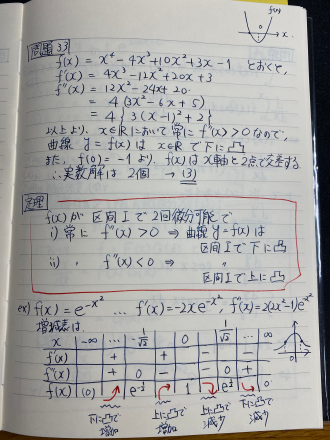 f(x)
x
問題33
f(x) = x⁴ - 4x³ + 10x² + 3x - 1 とおくと,
f'(x) = 4x³ - 12x² + 20x + 3
f''(x) = 12x² - 24x + 20
= 4 (3x² - 6x + 5)
= 4 { 3(x-1)² + 2 }
以上より, x∈R において常に f''(x) > 0 なので,
曲線 y = f(x) は x∈R で下に凸
また, f(0) = -1 より, f(x) は x軸と2点で交差する
∴ 実数解は 2個 → (3)
定理
f(x)が 区間Iで2回微分可能で
i) 常に f''(x) > 0 ⇒ 曲線 y=f(x) は
区間Iで下に凸
ii) 〃 f''(x) < 0 ⇒ 〃
区間Iで上に凸
ex) f(x) = e^{-x²} … f'(x) = -2xe^{-x²}, f''(x) = 2(2x²-1)e^{-x²}
増減表は
x -∞ … -1/√2 … 0 … 1/√2 … ∞
f'(x) + + - -
f''(x) + 0 - - 0 +
f(x) (0) e^{-1/2} 1 e^{-1/2} (0)
下に凸で 上に凸で 上に凸で 下に凸で
増加 増加 減少 減少